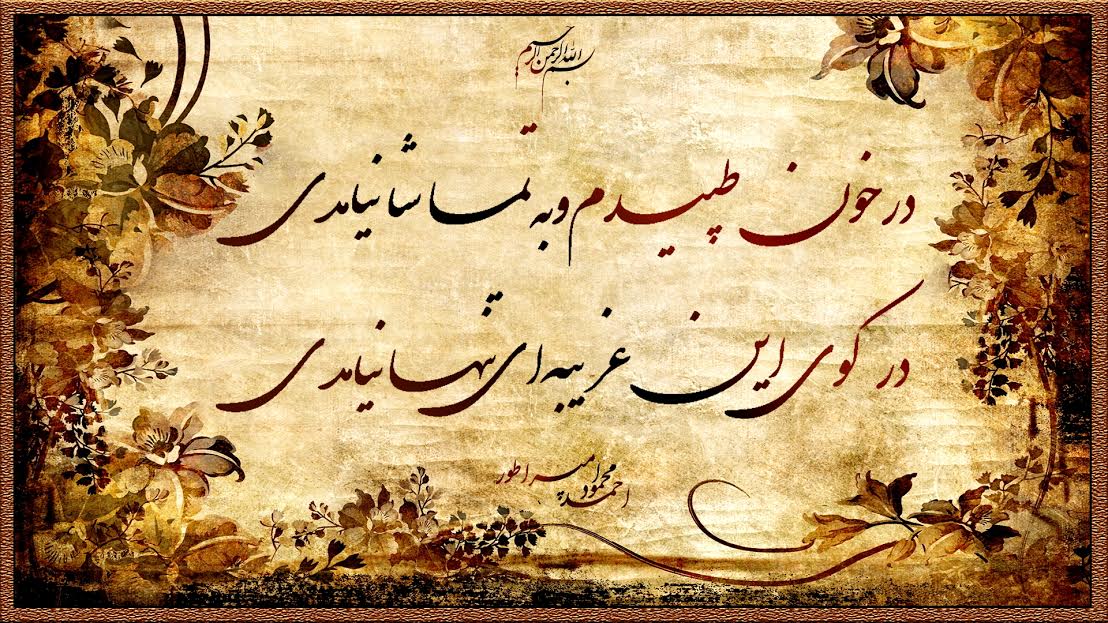 بسم الله الرحمن الرحیم
در خون طپیدم و به تماشا نیامدی
در کوی این غریبه ای تنها نیامدی
احمد محمود امپراطور